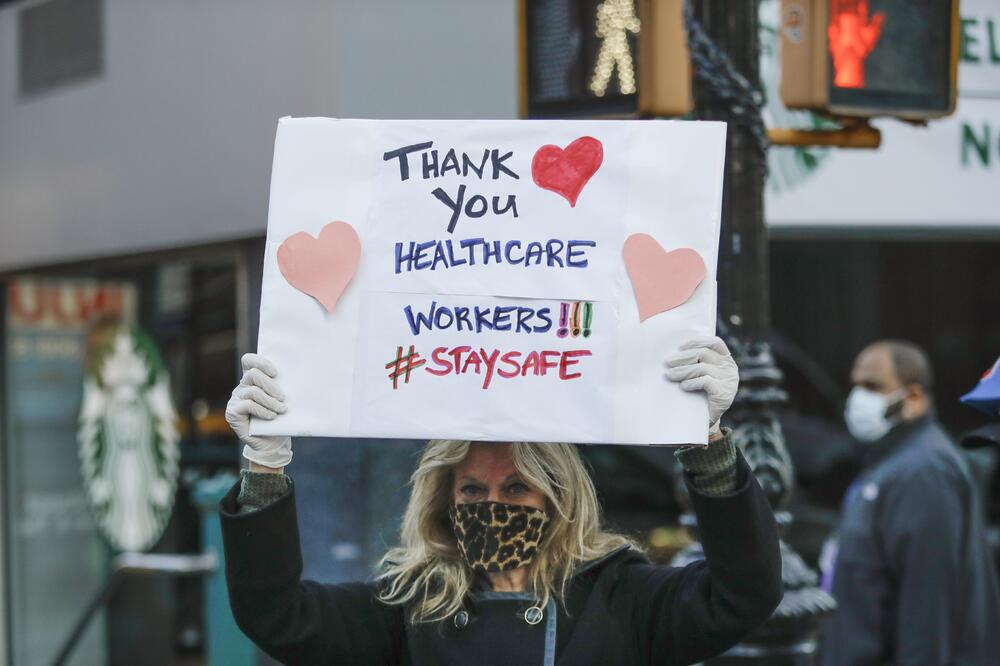 THANK
YOU
HEALTHCARE
WORKERS!!!
#STAYSAFE
EL
NO